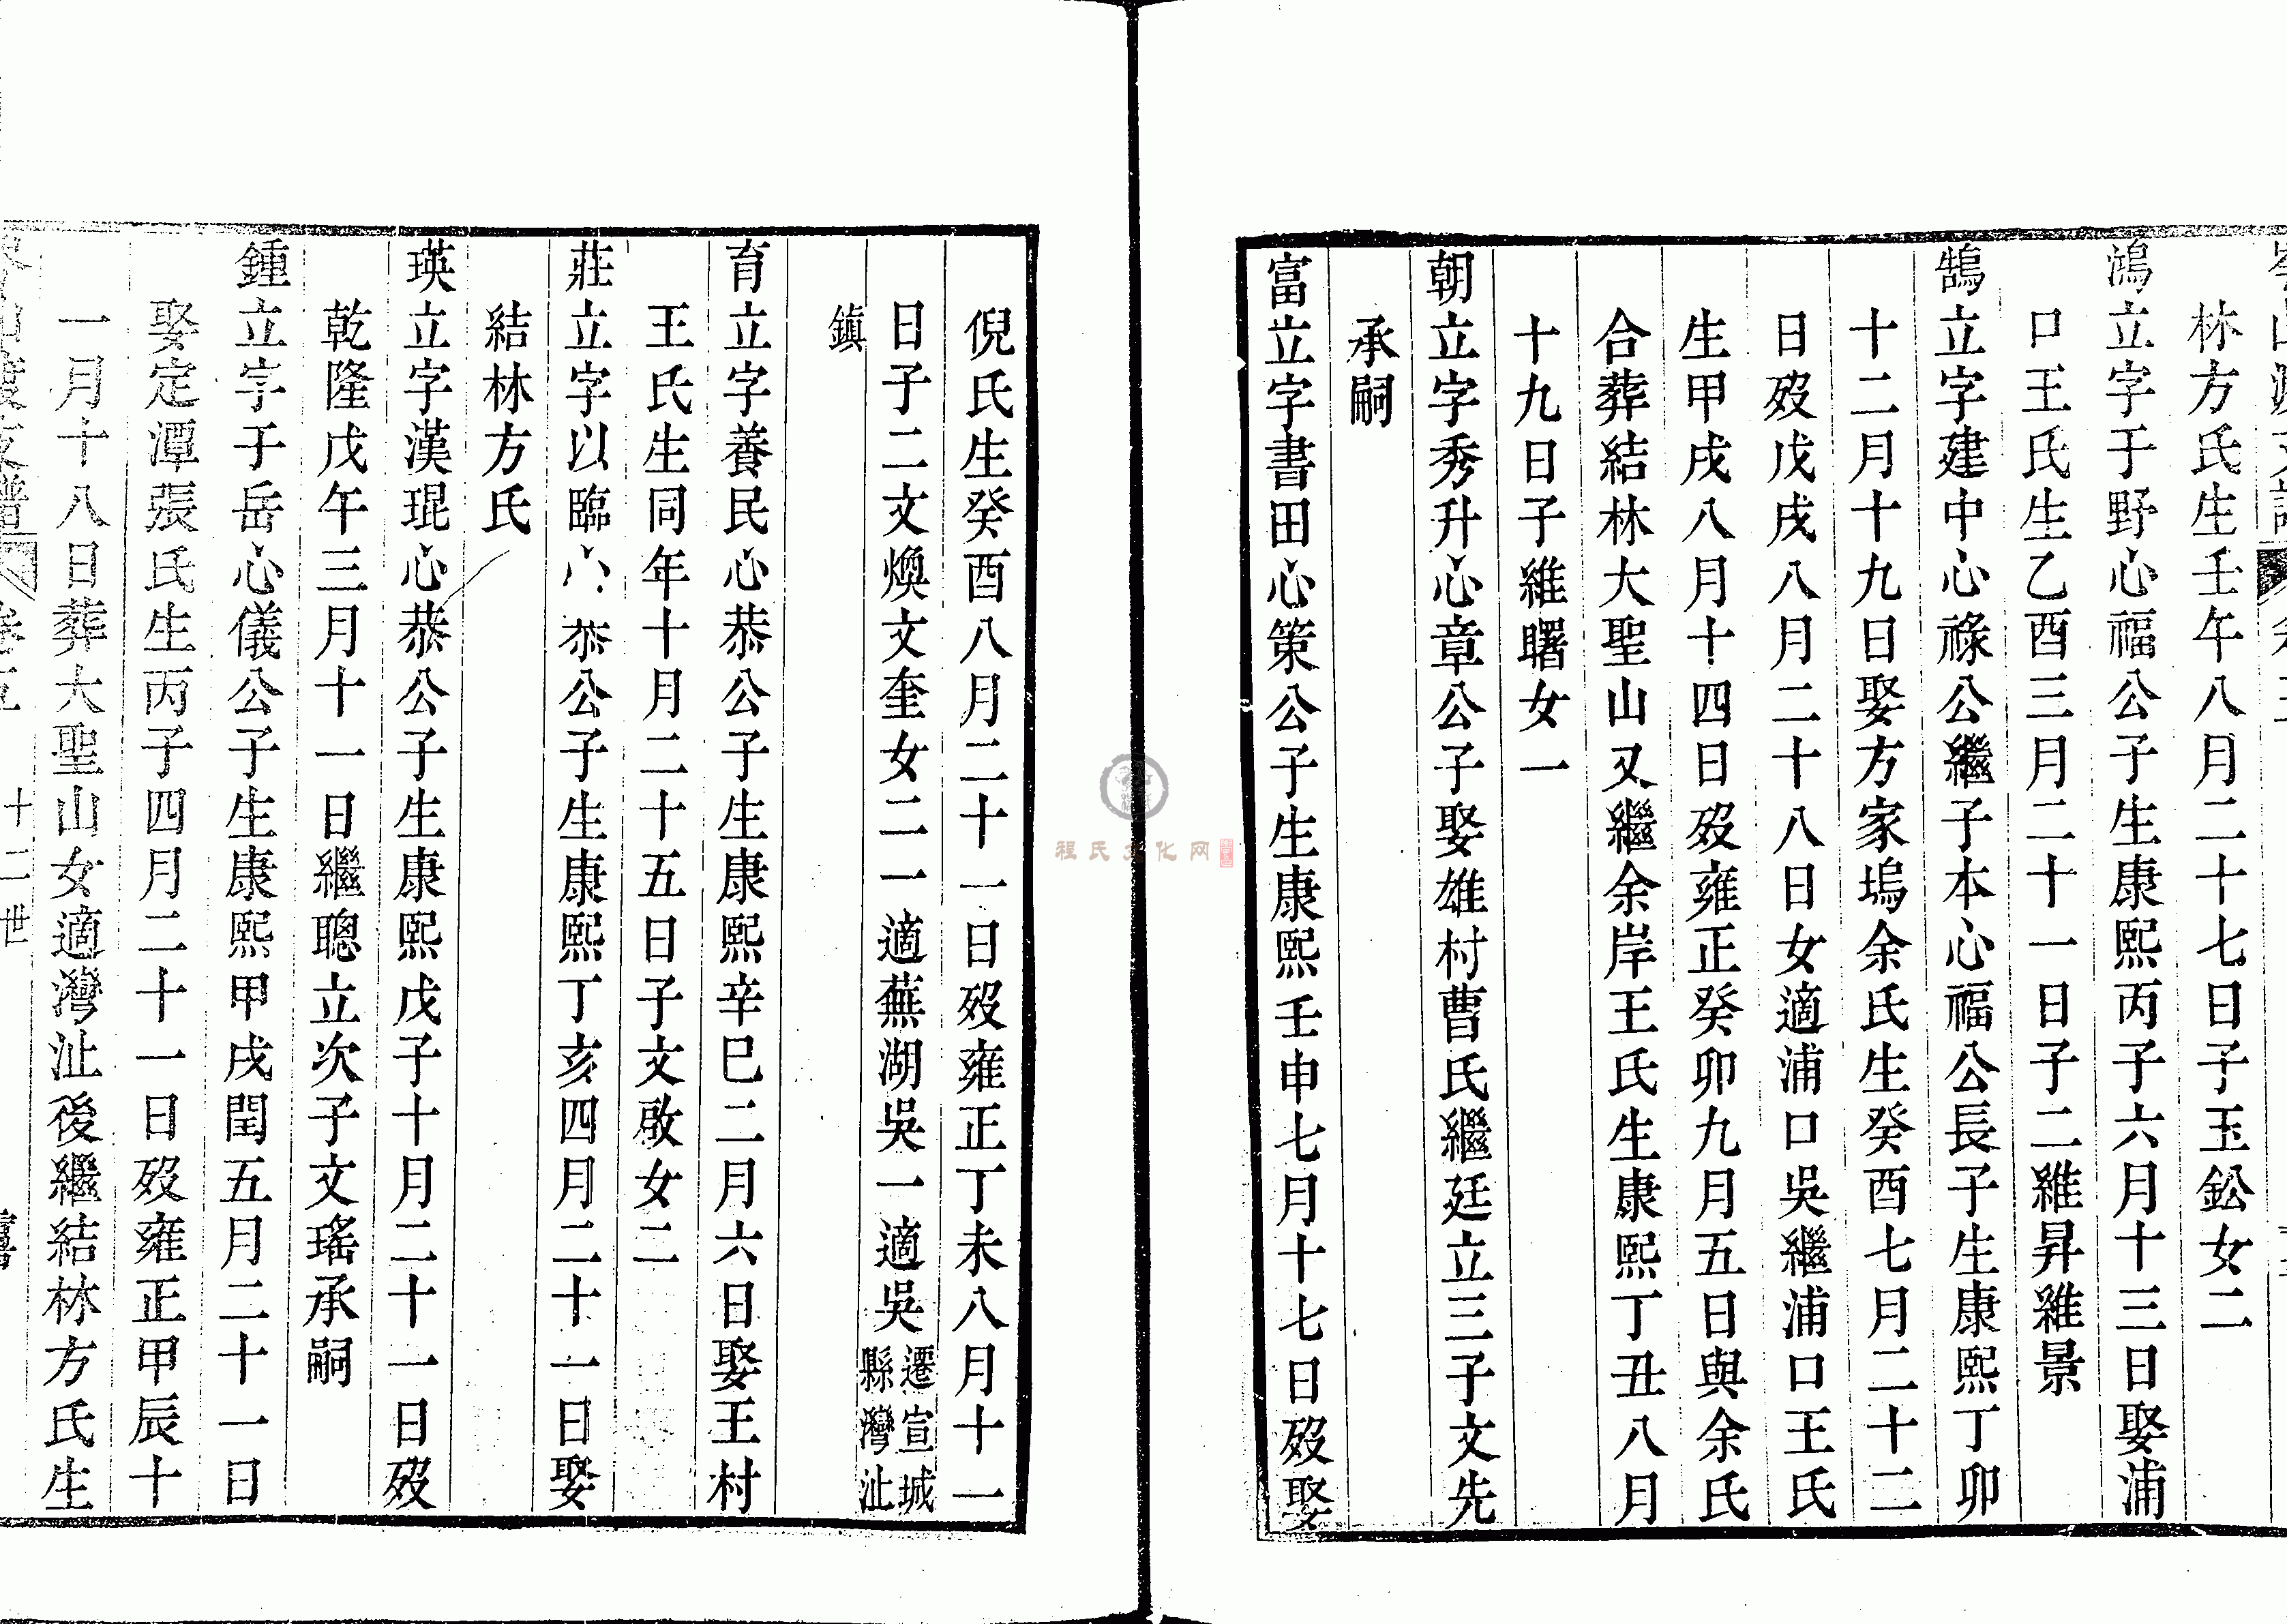 林方氏生壬午八月二十七日子玉鈆女二
鴻立字于野心福公子生康熙丙子六月十三日娶浦
口王氏生乙酉三月二十一日子二維昇維景
鵠立字建中心祿公繼子本心福公長子生康熙丁卯
十二月十九日娶方家塢余氏生癸酉七月二十二
日歿戊戌八月二十八日女適浦口吳繼浦口王氏
生甲戌八月十四日歿雍正癸卯九月五日與余氏
合葬結林大聖山又繼余岸王氏生康熙丁丑八月
十九日子維曙女一
朝立字秀升心章公子娶雄村曹氏繼廷立三子文先
承嗣
富立字書田心策公子生康熙壬申七月十七日歿娶
倪氏生癸酉八月二十一日歿雍正丁未八月十一
日子二文煥文奎女二一適蕪湖吳一適吳遷宣城縣灣沚
鎮
育立字養民心恭公子生康熙辛巳二月六日娶王村
王氏生同年十月二十五日子文啟女二
莊立字以臨心恭公子生康熙丁亥四月二十一日娶
結林方氏
瑛立字漢琨心恭公子生康熙戊子十月二十一日歿
乾隆戊午三月十一日繼聰立次子文瑤承嗣
鍾立字于岳心儀公子生康熙甲戌閏五月二十一日
娶定潭張氏生丙子四月二十一日歿雍正甲辰十
一月十八日葬大聖山女適灣沚後繼結林方氏生
支譜 卷五 十二世
程氏文化网